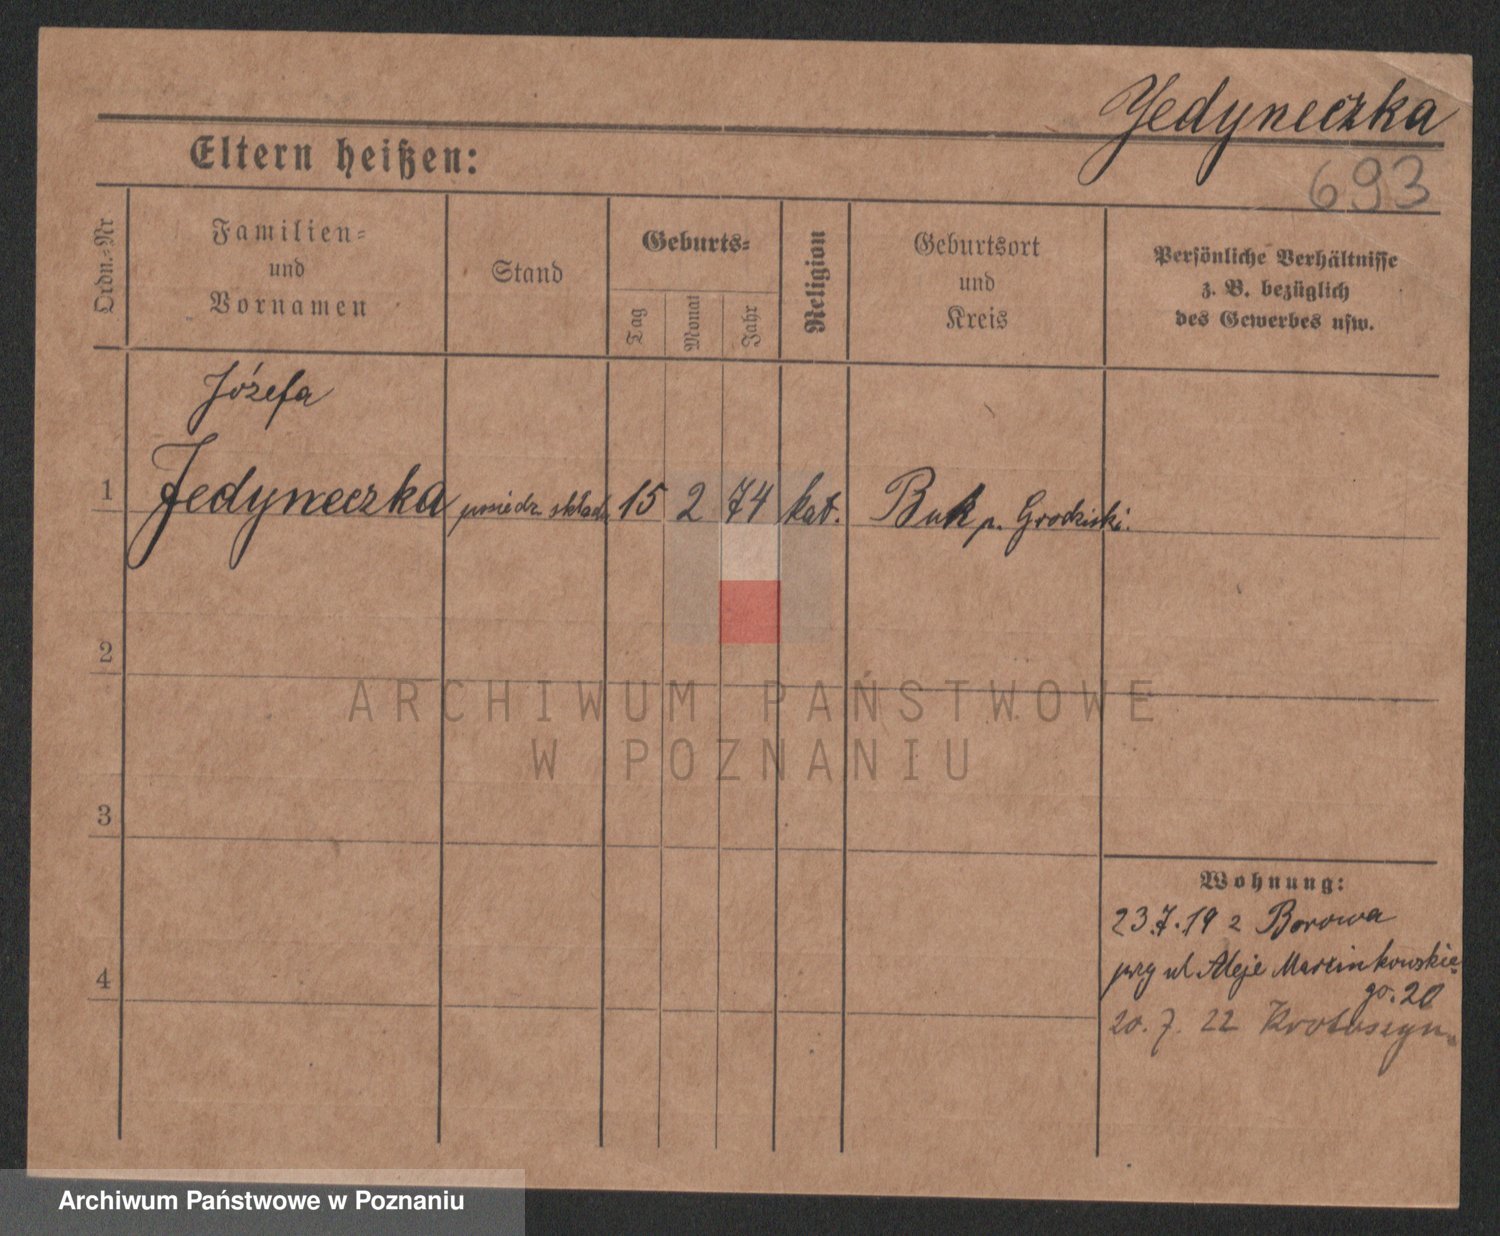 Jedyneczka
693
Eltern heißen:
Ordn.-Nr
Familien-
und
Vornamen
Stand
Geburts-
Tag
Monat
Jahr
Religion
Geburtsort
und
Kreis
Persönliche Verhältnisse
z. B. bezüglich
des Gewerbes usw.
Józefa
1 Jedyneczka posiedz. składu 15 2 74 kat. Buk p. Grodziski.
2
ARCHIWUM PAŃSTWOWE
W POZNANIU
3
Wohnung:
23.7.19 z Borowa
przy ul Aleje Marcinkowskie
4
go. 20
20. 7. 22 Krotoszyn
Archiwum Państwowe w Poznaniu